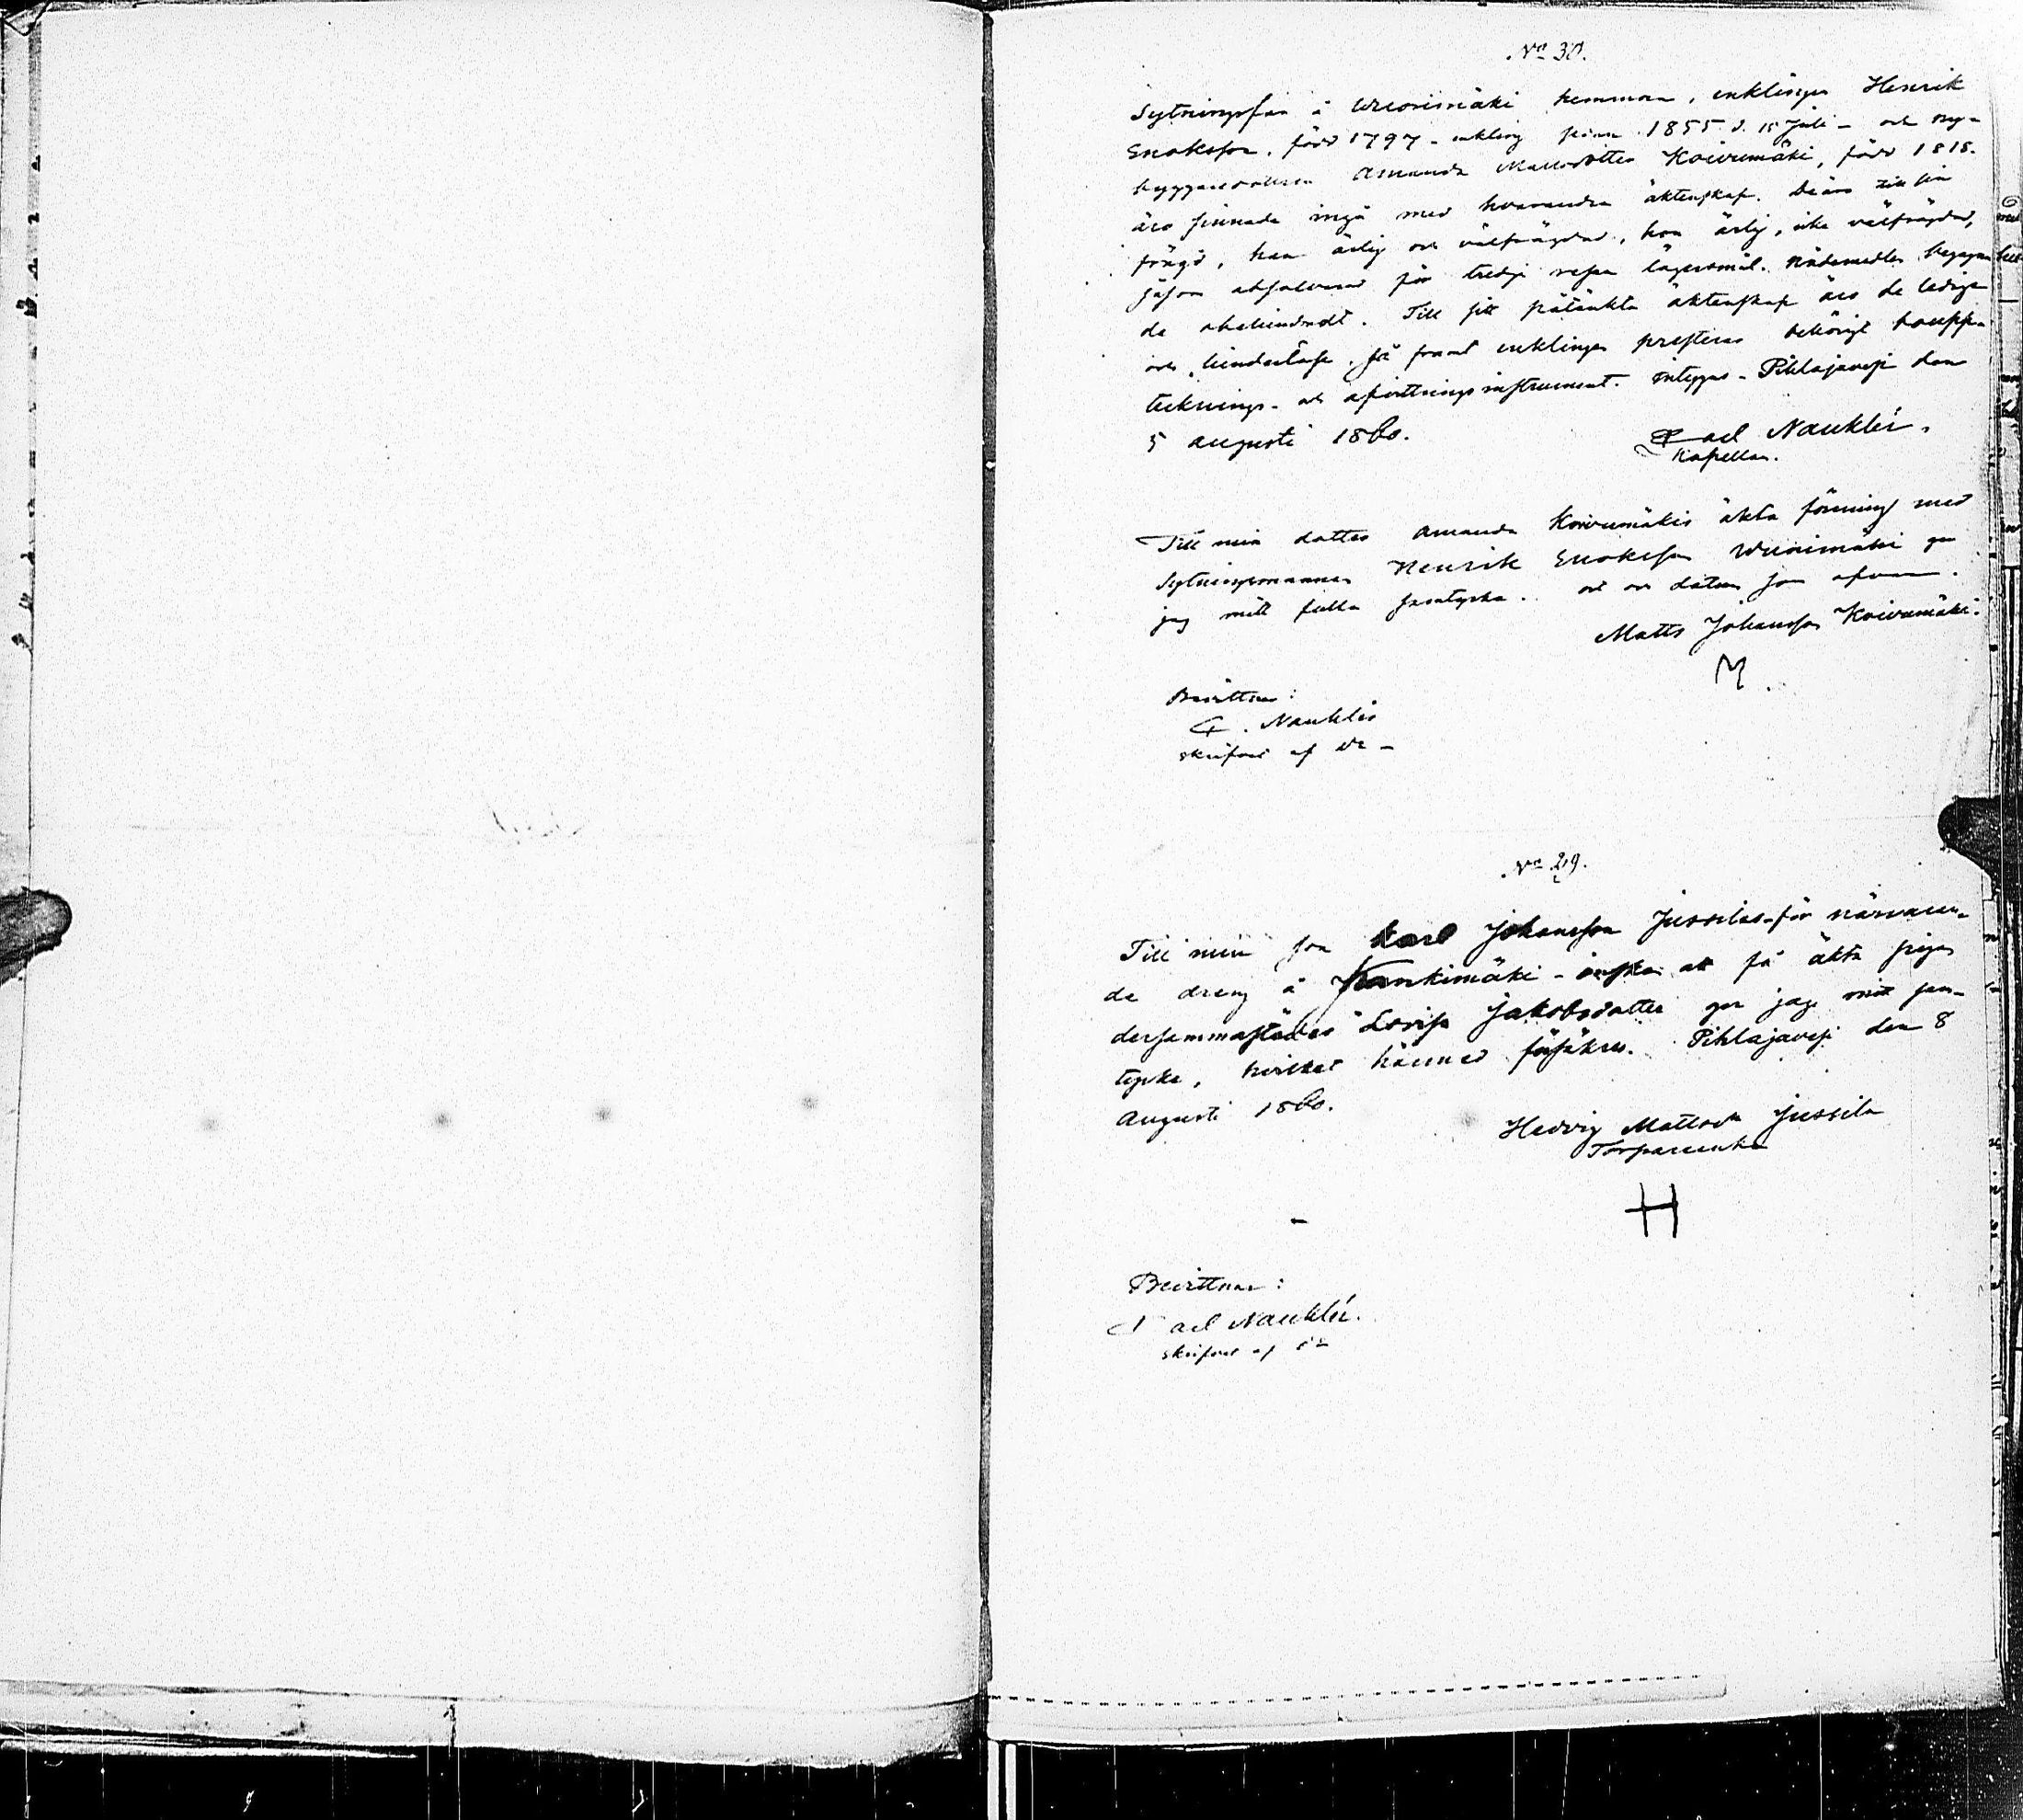 No 30.
Sytningsman å Wuorimäki hemman, enklingen Henrik
Enoksson, född 1797 - enkling sedan 1855 d. 15 Juli - och ny-
byggaredottren Amanda Mattsdotter Koivumäki, född 1818.
äro sinnade ingå med hvarandra äktenskap. De äro till sin
frägd, han ärlig och välfrägdad, hon ärlig, icke välfrägdad,
såsom absolverad för tredje resan lägersmål. Nådemedlen begagna
de obehindradt. Till sitt påtänkta äktenskap äro de lediga
och hinderlösa, så framt enklingen presterar behörigt bouppt-
tecknings- och afvittringsinstrument. Intygas - Pihlajavesi den
5 augusti 1860.
Carl Nauklér.
Kapellan.
Till min dotter Amanda Koivumäkis äkta förening med
Sytningsmannen Henrik Enoksson Wuorimäki ger
jag mitt fulla samtycke. ort och datum som ofvan.
Matts Johansson Koivumäki.
M
Bevittnar:
C. Nauklér
skrifvet af
No 29.
Till min son Karl Johansson Jussilas - för närvaran-
de dreng å Kankimäki - önskan att få äkta pigan
dersammastädes Lovisa Jakobsdotter ger jag mitt sam-
tycke, hvilket härmed försäkras. Pihlajavesi den 8
Augusti 1860.
Hedvig Mattsdr Jussila
Torpareenka
H
Bevittnar:
Carl Nauklér.
skrifvet af